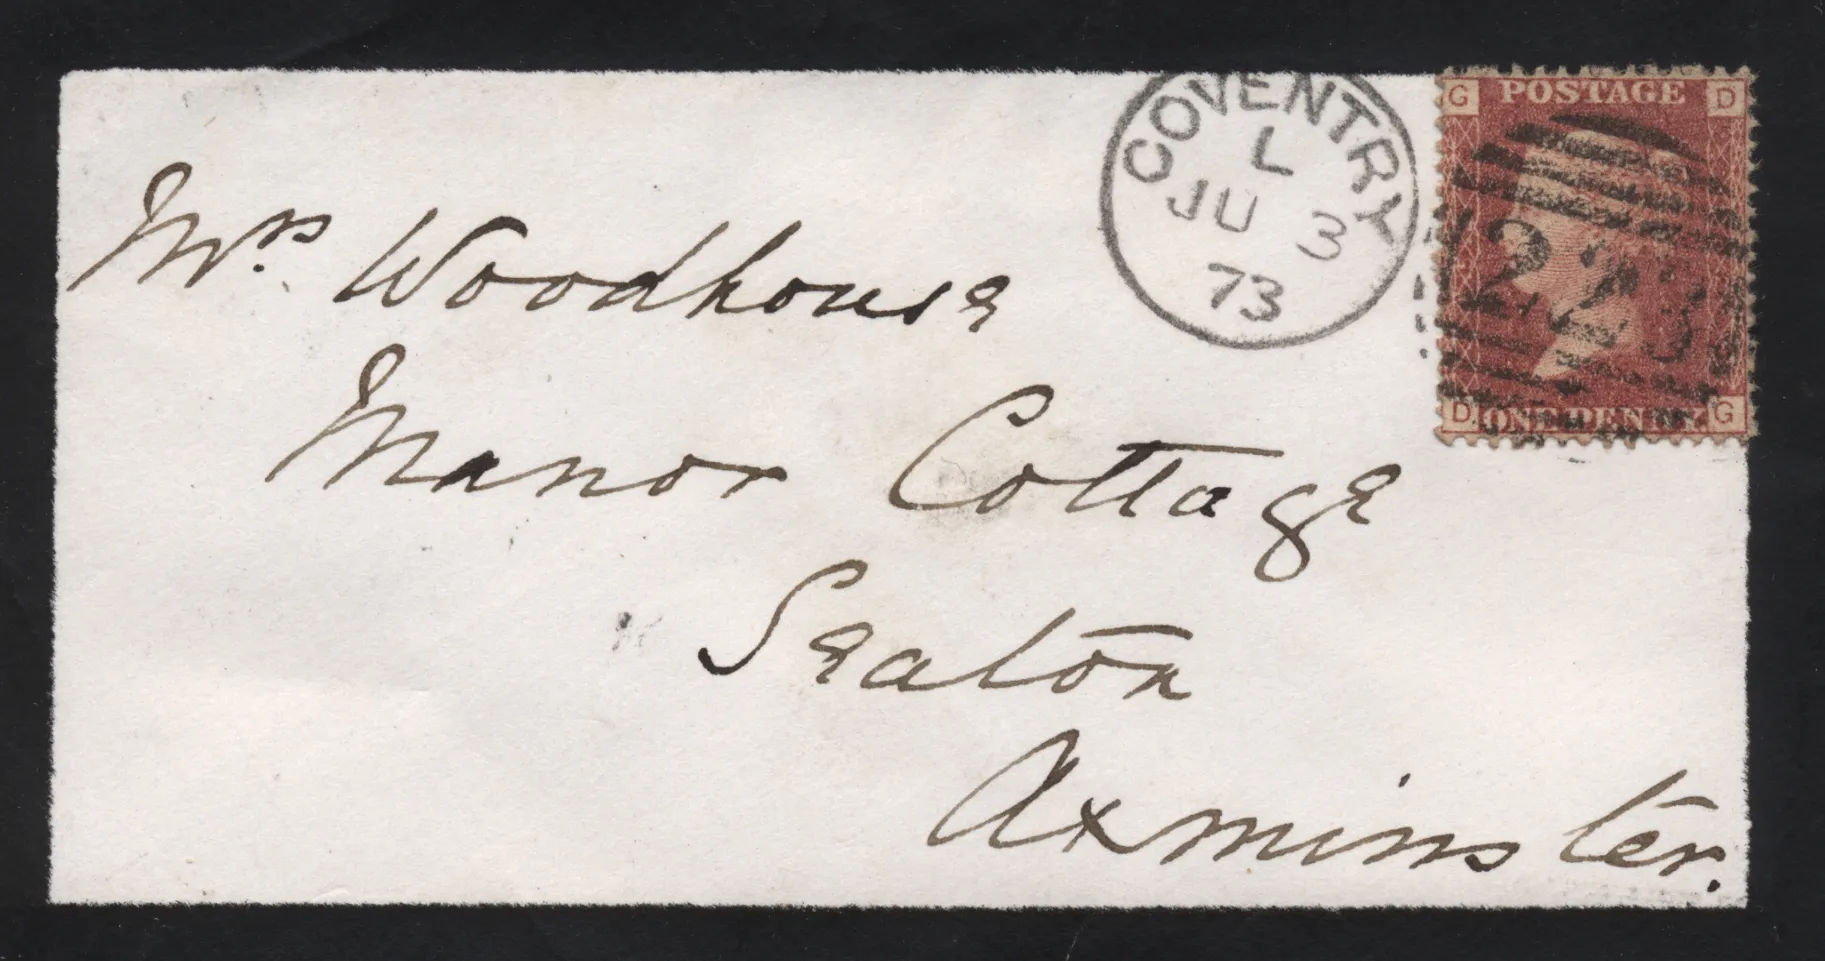 COVENTRY
L
JU 3
73
G POSTAGE D
223
D ONE PENNY G
Mrs. Woodhouse
Manor Cottage
Seaton
Axminster.